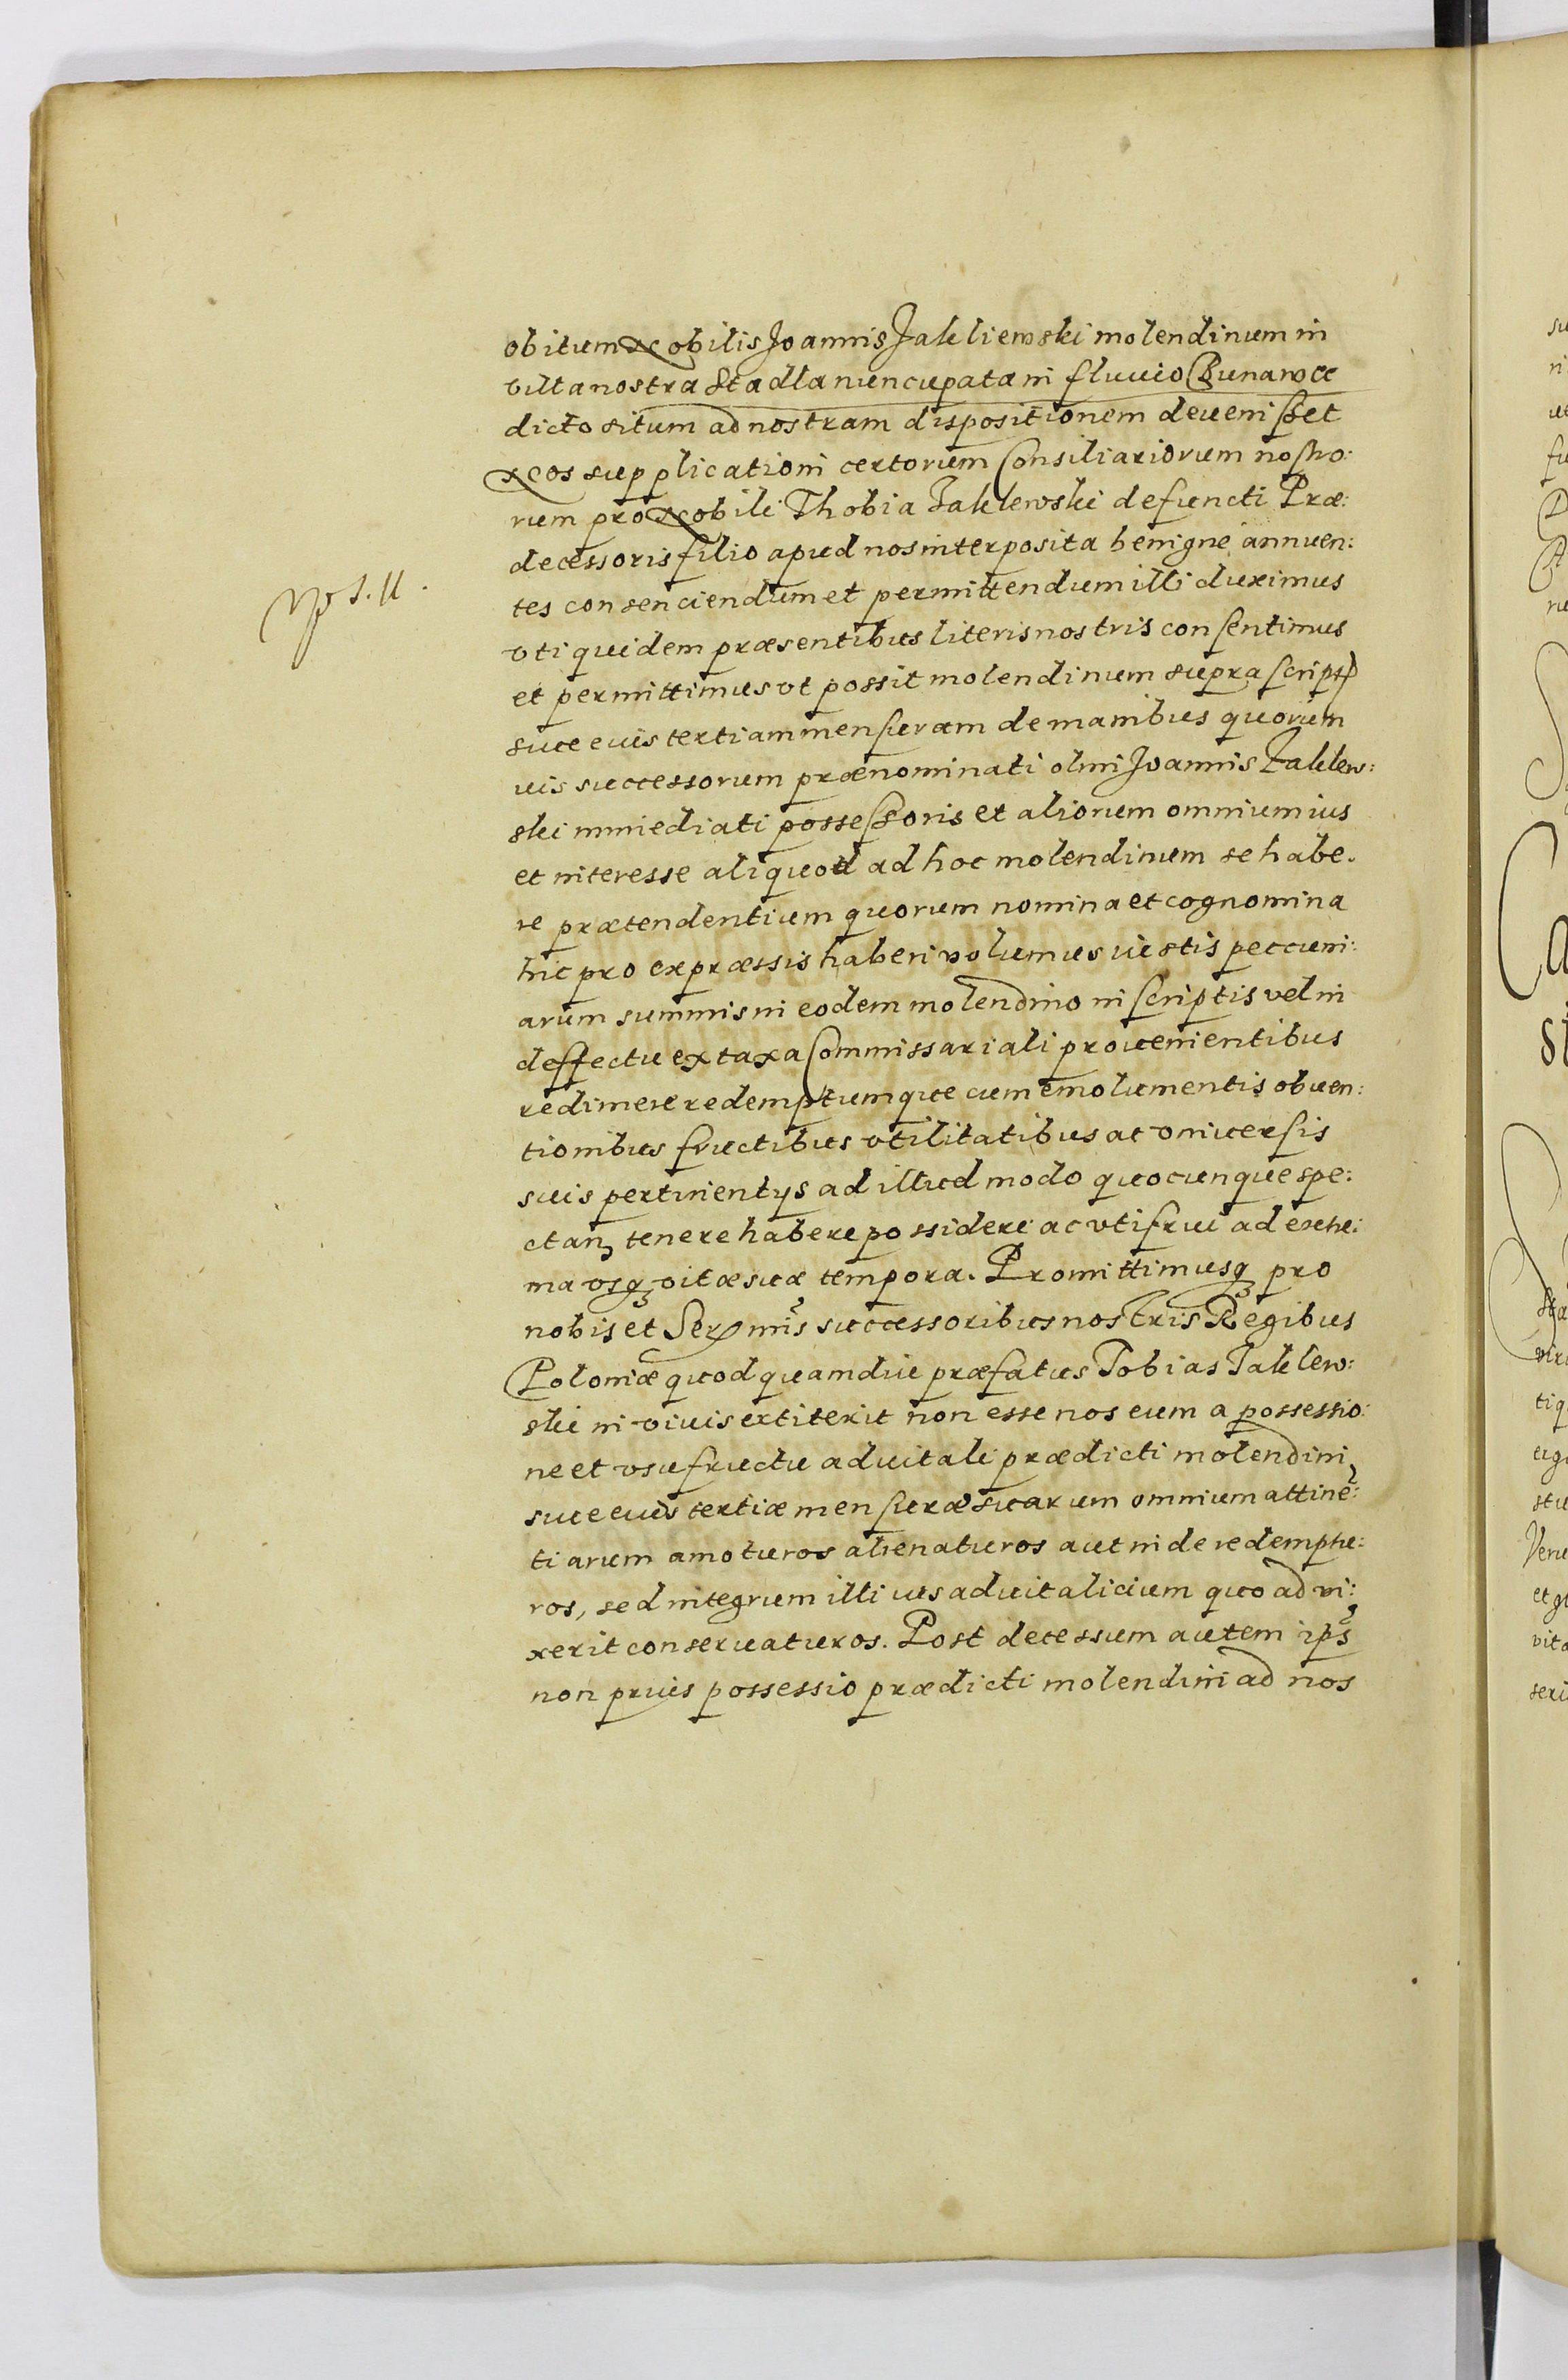 obitum Nobilis Joannis Jakliewski molendinum in
villa nostra Stadla nuncupata in fluuio Bunaroce
dicto situm ad nostram dispositionem deuenisset
Nos supplicationi certorum Consiliariorum nostro:
rum pro Nobili Thobia Jaklewski defuncti Præ:
decessoris filio apud nos interposita benigne annuen:
tes consenciendum et permittendum illi duximus
vti quidem præsentibus literis nostris consentimus
et permittimus vt possit molendinum supra script
siue eius tertiam mensuram de manibus quorum
uis successorum prænominati olim Joannis Jaklew:
ski immediati possessoris et aliorum omnium ius
et interesse aliquod ad hoc molendinum se habe.
re prætendentium quorum nomina et cognomina
hic pro expræssis haberi volumus iustis peccuni:
arum summis in eodem molendino inscriptis vel in
deffectu ex taxa Commissariali prouenientibus
redimere redemptumque cum emolumentis obuen:
tionibus fructibus vtilitatibus ac vniuersis
suis pertinentijs ad illud modo quocunque spe:
ctanz tenere habere possidere ac vtifrui ad extre:
ma vsqz vitæ suæ tempora. Promittimusqz pro
nobis et Sermis successoribus nostris Regibus
Poloniæ quod quamdiu præfatus Tobias Jaklew:
ski in viuis extiterit non esse nos eum a possessio:
ne et vsufructu aduitali prædicti molendini
siue eius tertiæ mensuræ suarum omnium attinē:
tiarum amoturos alienaturos aut inde redemptu:
ros, sed integrum illi ius aduitalicium quo ad vi:
xerit conseruaturos. Post decessum autem ips
non prius possessio prædicti molendini ad nos